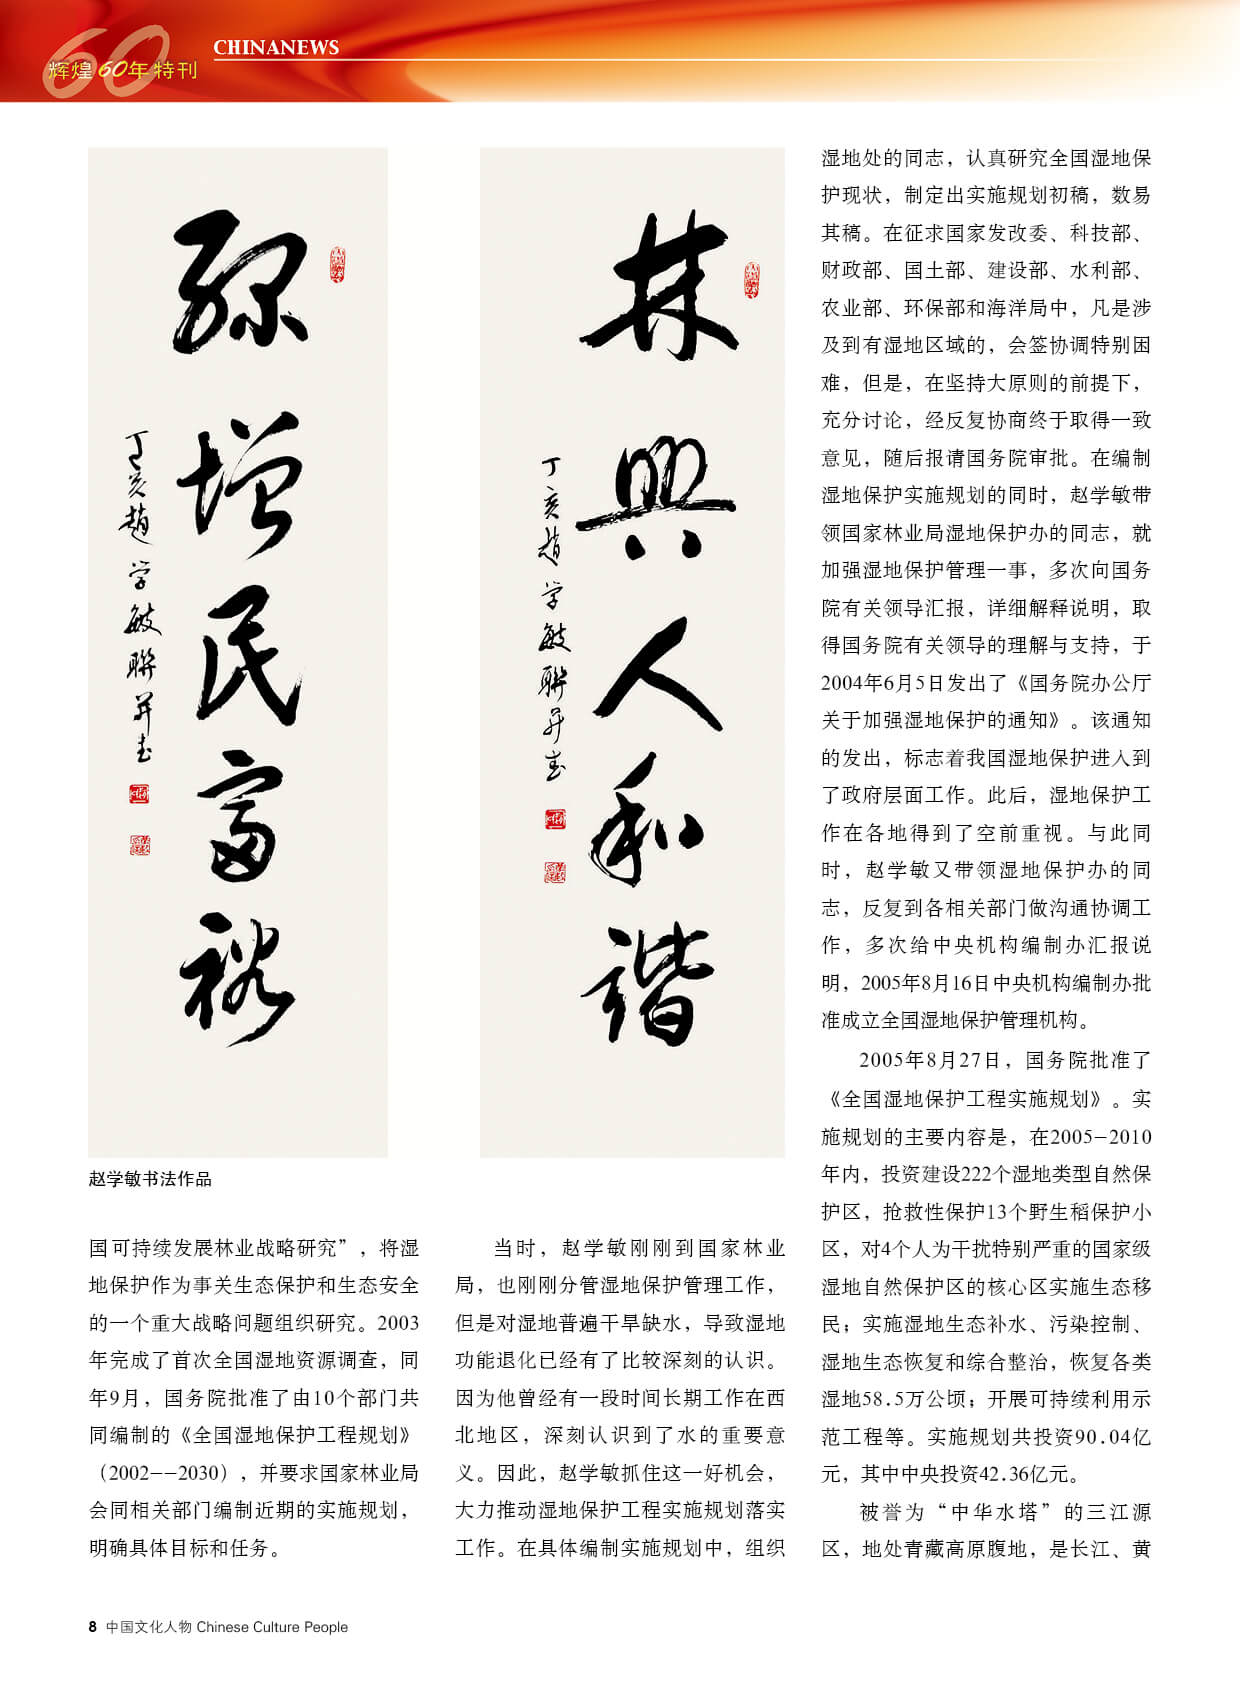 CHINANEWS
辉煌60年特刊
林興人和諧
丁亥趙学敏聯并书
绿增民富裕
丁亥趙学敏聯并书
赵学敏书法作品
国可持续发展林业战略研究”，将湿
地保护作为事关生态保护和生态安全
的一个重大战略问题组织研究。2003
年完成了首次全国湿地资源调查，同
年9月，国务院批准了由10个部门共
同编制的《全国湿地保护工程规划》
（2002——2030），并要求国家林业局
会同相关部门编制近期的实施规划，
明确具体目标和任务。
当时，赵学敏刚刚到国家林业
局，也刚刚分管湿地保护管理工作，
但是对湿地普遍干旱缺水，导致湿地
功能退化已经有了比较深刻的认识。
因为他曾经有一段时间长期工作在西
北地区，深刻认识到了水的重要意
义。因此，赵学敏抓住这一好机会，
大力推动湿地保护工程实施规划落实
工作。在具体编制实施规划中，组织
湿地处的同志，认真研究全国湿地保
护现状，制定出实施规划初稿，数易
其稿。在征求国家发改委、科技部、
财政部、国土部、建设部、水利部、
农业部、环保部和海洋局中，凡是涉
及到有湿地区域的，会签协调特别困
难，但是，在坚持大原则的前提下，
充分讨论，经反复协商终于取得一致
意见，随后报请国务院审批。在编制
湿地保护实施规划的同时，赵学敏带
领国家林业局湿地保护办的同志，就
加强湿地保护管理一事，多次向国务
院有关领导汇报，详细解释说明，取
得国务院有关领导的理解与支持，于
2004年6月5日发出了《国务院办公厅
关于加强湿地保护的通知》。该通知
的发出，标志着我国湿地保护进入到
了政府层面工作。此后，湿地保护工
作在各地得到了空前重视。与此同
时，赵学敏又带领湿地保护办的同
志，反复到各相关部门做沟通协调工
作，多次给中央机构编制办汇报说
明，2005年8月16日中央机构编制办批
准成立全国湿地保护管理机构。
2005年8月27日，国务院批准了
《全国湿地保护工程实施规划》。实
施规划的主要内容是，在2005-2010
年内，投资建设222个湿地类型自然保
护区，抢救性保护13个野生稻保护小
区，对4个人为干扰特别严重的国家级
湿地自然保护区的核心区实施生态移
民；实施湿地生态补水、污染控制、
湿地生态恢复和综合整治，恢复各类
湿地58.5万公顷；开展可持续利用示
范工程等。实施规划共投资90.04亿
元，其中中央投资42.36亿元。
被誉为“中华水塔”的三江源
区，地处青藏高原腹地，是长江、黄
8 中国文化人物 Chinese Culture People